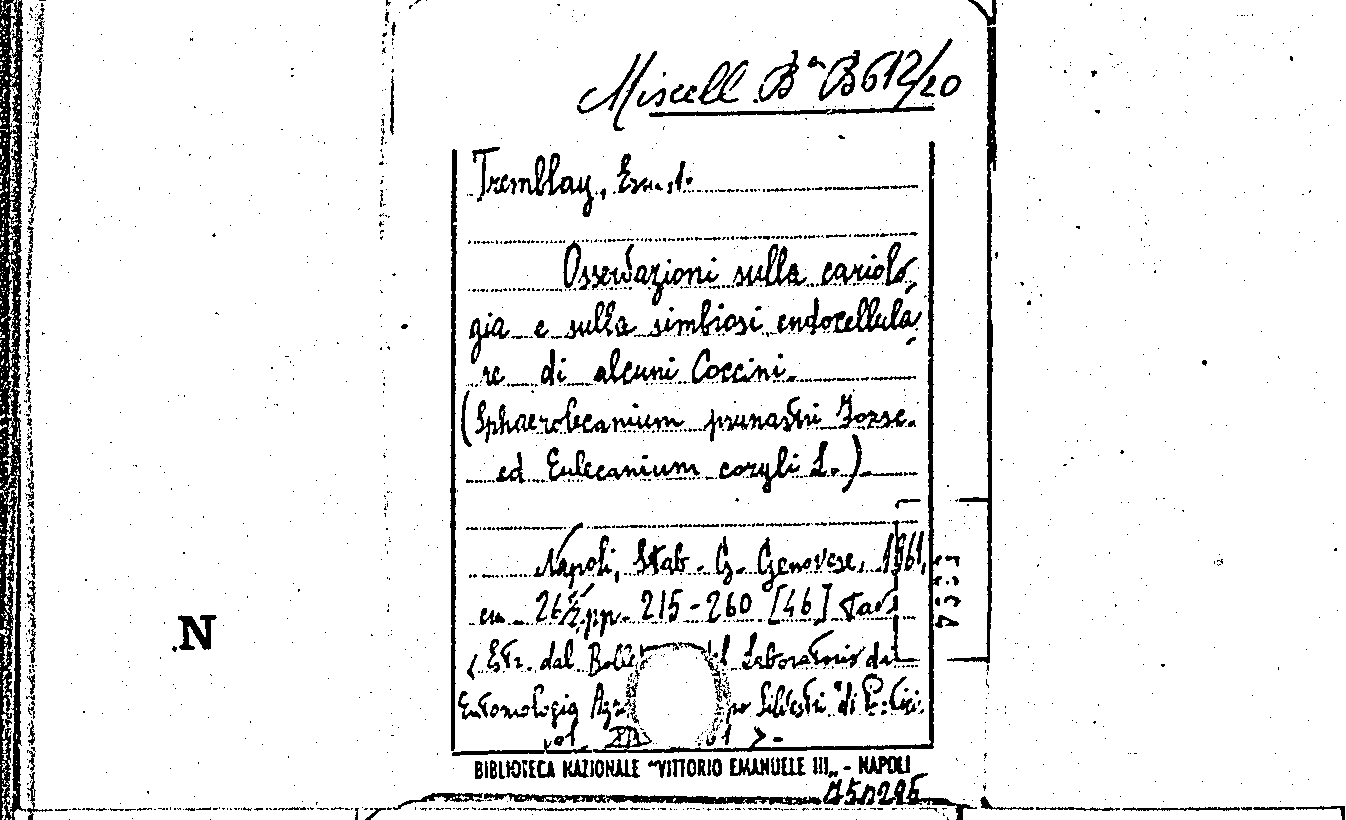 Miscell. Bª B612/20
Tremblay,
Osservazioni sulla cariolo,
gia e sulla simbiosi endocellula
re di alcuni Coccini.
(Sphaerolecanium prunastri Fonsc.
ed Eulecanium coryli L.)
Napoli, Stab. G. Genovese, 1961,
cm 26½ pp. 215-260 [46] tav.
(Estr. dal Laboratorio di
Entomologia Silvestri" di Portici.
vol.
N
BIBLIOTECA NAZIONALE "VITTORIO EMANUELE III„ - NAPOLI